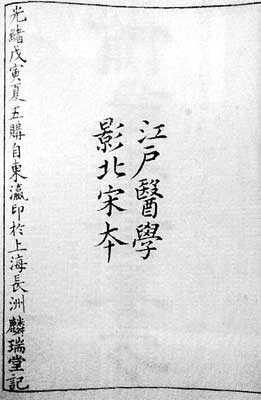 江戶醫學
影北宋本
光緒戊寅夏五購自東瀛印於上海長洲麟瑞堂記